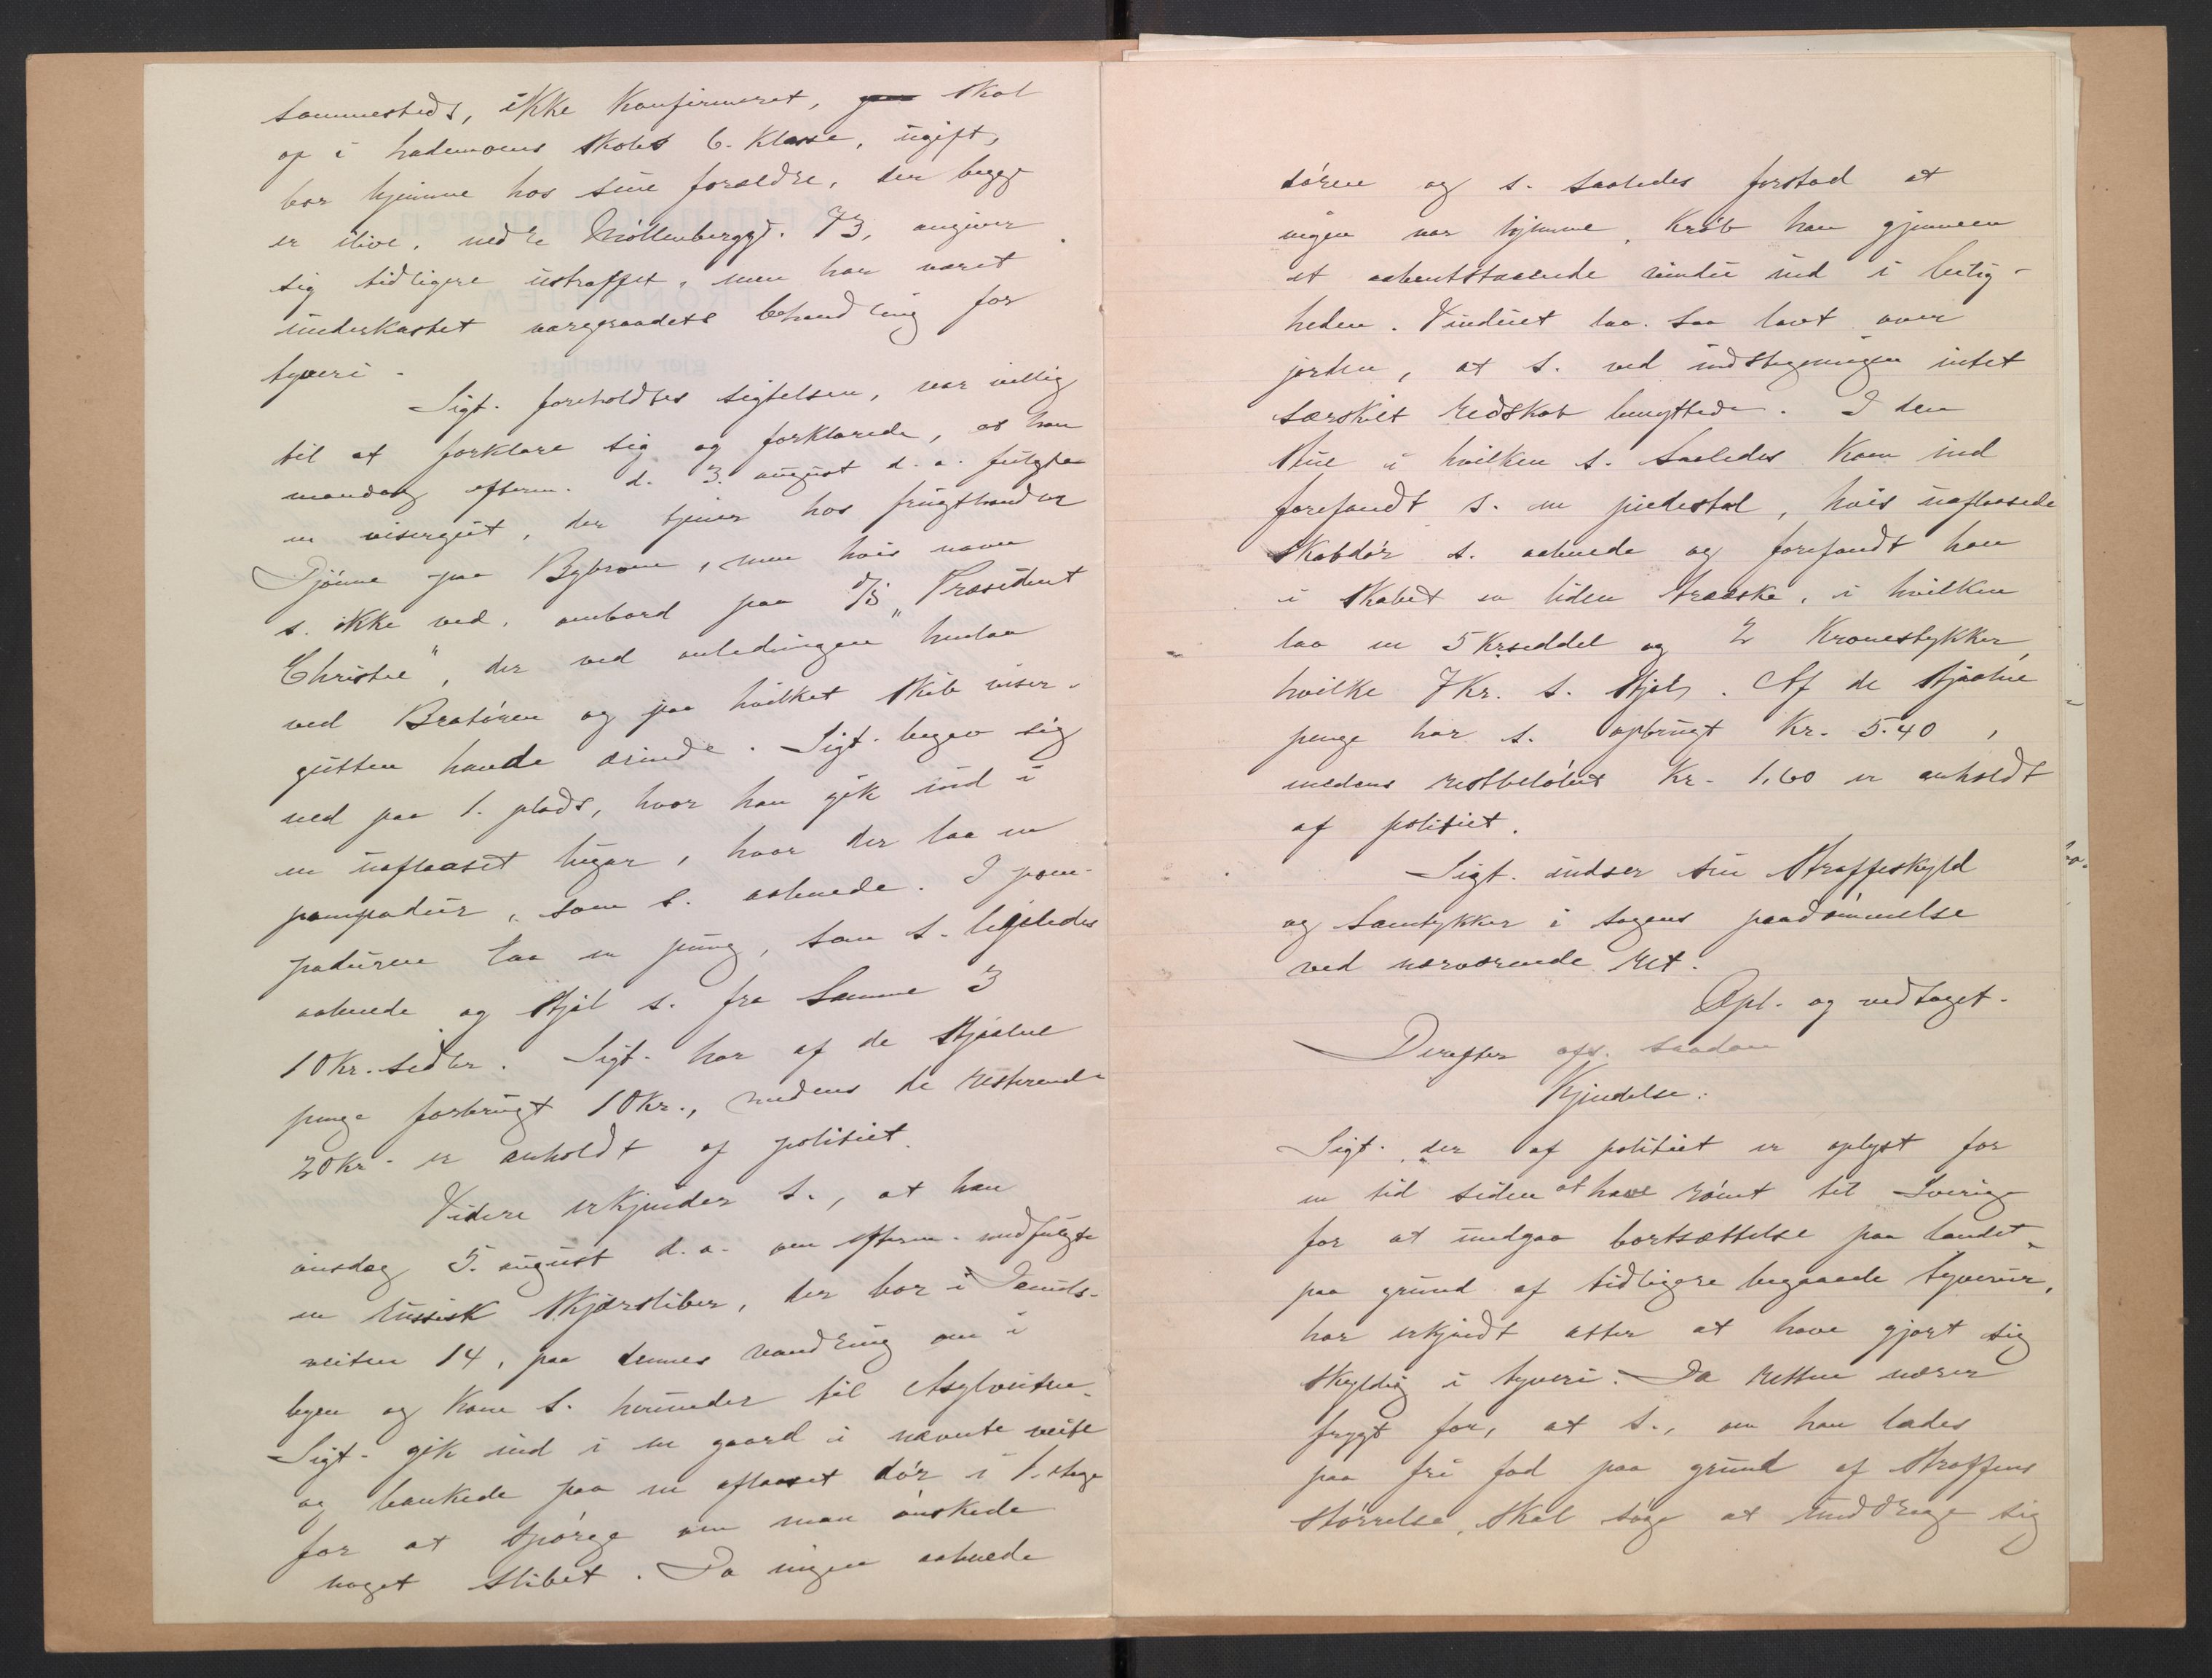 sammesteds, ikke konfirmeret, skal
op i lademoens skoles 6. klasse, ugift,
bor hjemme hos sine forældre, der begge
er ilive, nedre Møllenberggt. 73, angiver
sig tidligere ustraffet, men har været
underkastet værgeraadets behandling for
tyveri.
Sigt. foreholdtes sigtelsen, var villig
til at forklare sig og forklarede, at han
mandag efterm. d. 3. august d. a. fulgte
en visergut, der tjener hos frugthandler
Tjönne paa Bybroen, men hvis navn
s. ikke ved, ombord paa D/S "Præsident
Christie", der ved anledningen henlaa
ved Bratören og paa hvilket skib viser-
gutten havde ærinde. Sigt. begav sig
ned paa 1. plads, hvor han gik ind i
en uaflaaset lugar, hvor der laa en
pompadur, som s. aabnede. I pom-
paduren laa en pung, som s. ligeledes
aabnede og stjal s. fra samme 3
10 kr. sedler. Sigt. har af de stjaalne
penge forbrugt 10 kr., medens de resterende
20 kr. er anholdt af politiet.
Videre erkjender s., at han
onsdag 5. august d. a. om efterm. medfulgte
en russisk skjærsliber, der bor i Danids-
veiten 14, paa dennes vandring om i
byen og kom s. herunder til Asylveiten.
Sigt. gik ind i en gaard i nævnte veite
og bankede paa en aflaaset dör i 1. etage
for at spörge om man önskede
noget slibet. Da ingen aabnede
dören og s. saaledes forstod at
ingen var hjemme, kröb han gjennem
et aabentstaaende vindu ind i leilig-
heden. Vinduet laa saa lavt over
jorden, at s. ved indstigningen intet
særskilt redskab benyttede. I den
stue i hvilken s. saaledes kom ind
forefandt s. en piedestal, hvis uaflaasede
skabdör s. aabnede og forefandt han
i skabet en liden trææske, i hvilken
laa en 5 kr seddel og 2 kronestykker,
hvilke 7 kr. s. stjal. Af de stjaalne
penge har s. opbrugt kr. 5.40,
medens restbelöbet kr. 1,60 er anholdt
af politiet.
Sigt. indser sin straffeskyld
og samtykker i sagens paadömmelse
ved nærværende ret.
Opl. og vedtaget.
Derefter afs. saadan
Kjendelse:
Sigt. der af politiet er oplyst for
en tid siden at have römt til Sverige
for at undgaa bortsættelse paa landet
paa grund af tidligere begaaede tyverier,
har erkjendt atter at have gjort sig
skyldig i tyveri. Da retten nærer
frygt for, at s., om han lades
paa fri fod paa grund af straffens
störrelse, skal söge at unddrage sig